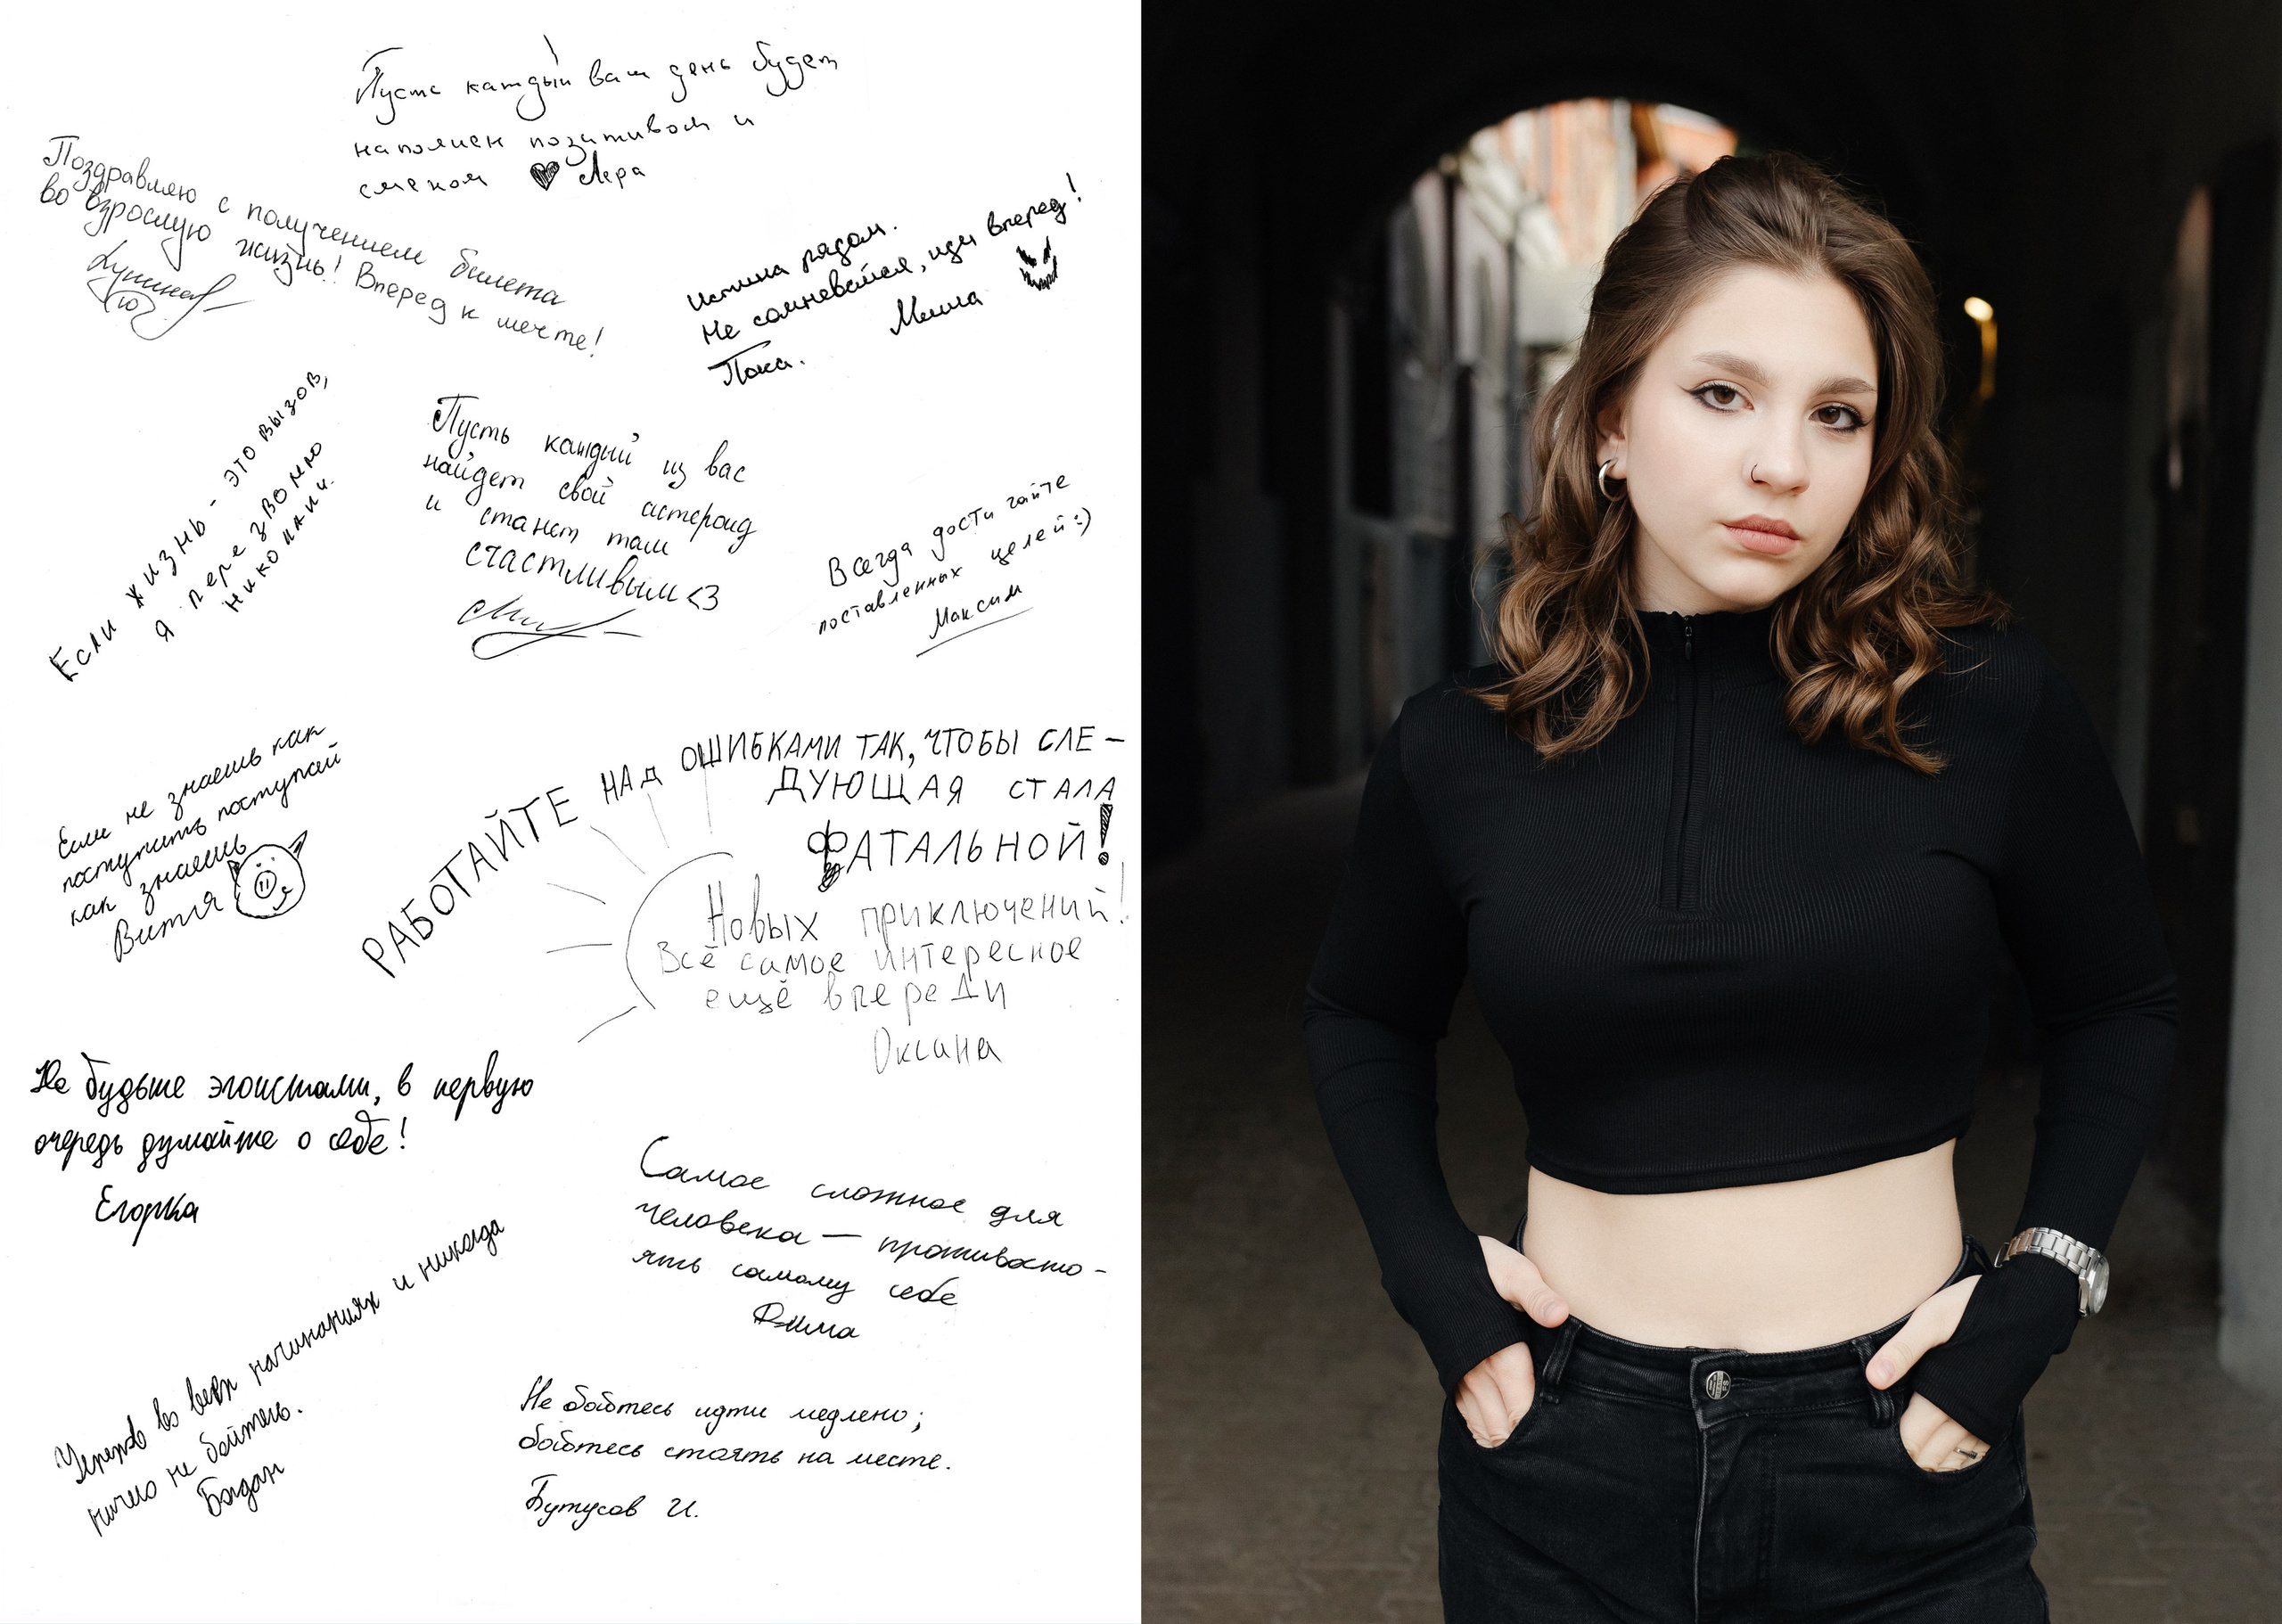 Пусть каждый ваш день будет
наполнен позитивом и
смехом Лера
Поздравляю с получением билета
во взрослую жизнь! Вперед к мечте!
Истина рядом.
Не сомневайся, иди вперед!
Пока. Миша
Если жизнь - это вызов,
я перезвоню
Пусть каждый из вас
найдет свой астероид
и станет там
счастливым <3
Всегда достигайте
поставленных целей :)
Максим
Если не знаешь как
поступить поступай
как знаешь
Витя
РАБОТАЙТЕ НАД ОШИБКАМИ ТАК, ЧТОБЫ СЛЕ-
ДУЮЩАЯ СТАЛА
ФАТАЛЬНОЙ!
Новых приключений!
Всё самое интересное
ещё впереди
Оксана
Не будьте эгоистами, в первую
очередь думайте о себе!
Егорка
Самое сложное для
человека — противосто-
ять самому себе
Дима
Успехов во всех начинаниях и никогда
ничего не бойтесь.
Богдан
Не бойтесь идти медлено;
бойтесь стоять на месте.
Бутусов И.